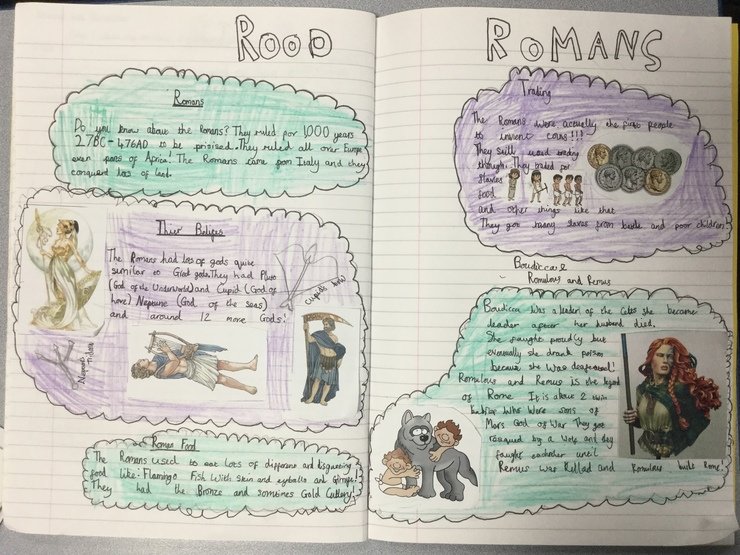 ROOD
ROMANS
Romans
Do you know about the Romans? They ruled for 1000 years
27BC - 476AD to be prisised. They ruled all over Europe
even pars of Africa! The Romans came from Italy and they
conquert lots of land.
Thier Beliefes
The Romans had lots of gods quite
similar to Greek gods. They had Pluto
(God of the Underworld) and Cupid (God of
love) Neptune (God of the seas)
and around 12 more Gods!
Cupids bow
Neptunes Trident
Roman Food
The Romans used to eat lots of different and disgusting
food like: Flamingo Fish with skin and eyballs and Giraffe.
They had the Bronze and somtimes Gold Cutlery!
Trading
The Romans were actually the first people
to invent coins!!!
They still used trading
though. They traded for
Slaves
food
and other things like that
They got many slaves from battle and poor children
Boudiccare
Romulous and Remus
Boudicca was a leader of the Celts she became
leader after her husband died.
She faught proudly but
eventually she drank poison
because she was defeated!
Romulous and Remus is the legend
of Rome It is about 2 twin
who were sons of
Mars God of War They got
rescued by a Wolf and they
faught eachother until
Remus was Killed and Romulous built Rome.